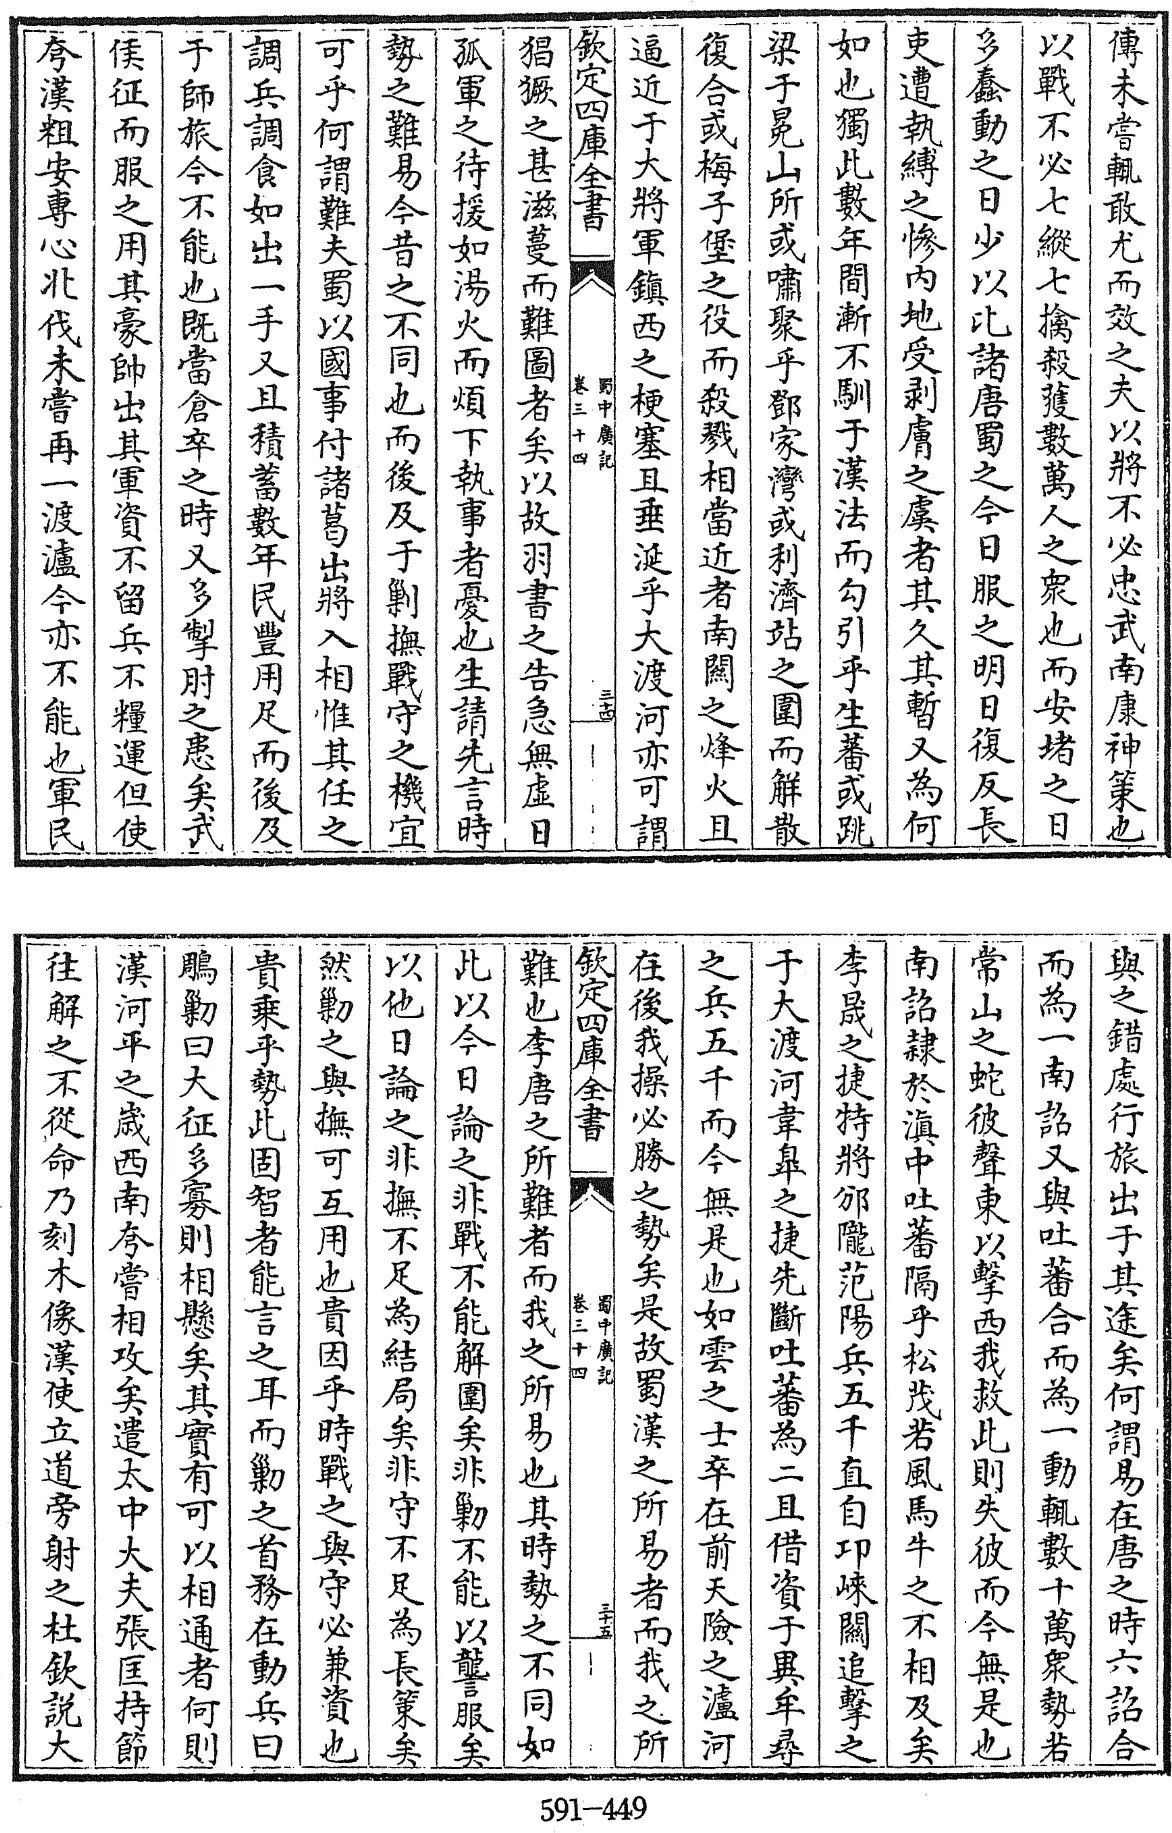 傳未嘗輒敢尤而效之夫以將不必忠武南康神策也
以戰不必七縱七擒殺獲數萬人之衆也而安堵之日
多蠢動之日少以比諸唐蜀之今日服之明日復反長
吏遭執縛之慘內地受剥膚之虞者其久其暫又為何
如也獨此數年間漸不馴于漢法而勾引乎生蕃或跳
梁于冕山所或嘯聚乎鄧家灣或利濟站之圍而解散
復合或梅子堡之役而殺戮相當近者南關之烽火且
逼近于大將軍鎮西之梗塞且垂涎乎大渡河亦可謂
欽定四庫全書
蜀中廣記
卷三十四
三十四
猖獗之甚滋蔓而難圖者矣以故羽書之告急無虛日
孤軍之待援如湯火而煩下執事者憂也生請先言時
勢之難易今昔之不同也而後及于剿撫戰守之機宜
可乎何謂難夫蜀以國事付諸葛出將入相惟其任之
調兵調食如出一手又且積蓄數年民豐用足而後及
于師旅今不能也既當倉卒之時又多掣肘之患矣武
侯征而服之用其豪帥出其軍資不留兵不糧運但使
夸漢粗安專心北伐未嘗再一渡瀘今亦不能也軍民
與之錯處行旅出于其途矣何謂易在唐之時六詔合
而為一南詔又與吐蕃合而為一動輒數十萬衆勢若
常山之蛇彼聲東以擊西我救此則失彼而今無是也
南詔隸於滇中吐蕃隔乎松茂若風馬牛之不相及矣
李晟之捷特將邠隴范陽兵五千直自卭崍關追擊之
于大渡河韋臯之捷先斷吐蕃為二且借資于異牟尋
之兵五千而今無是也如雲之士卒在前天險之瀘河
在後我操必勝之勢矣是故蜀漢之所易者而我之所
欽定四庫全書
蜀中廣記
卷三十四
三十五
難也李唐之所難者而我之所易也其時勢之不同如
此以今日論之非戰不能解圍矣非勦不能以讋服矣
以他日論之非撫不足為結局矣非守不足為長策矣
然勦之與撫可互用也貴因乎時戰之與守必兼資也
貴乘乎勢此固智者能言之耳而勦之首務在動兵曰
鵰勦曰大征多寡則相懸矣其實有可以相通者何則
漢河平之歲西南夸嘗相攻矣遣太中大夫張匡持節
往解之不從命乃刻木像漢使立道旁射之杜欽説大
591-449